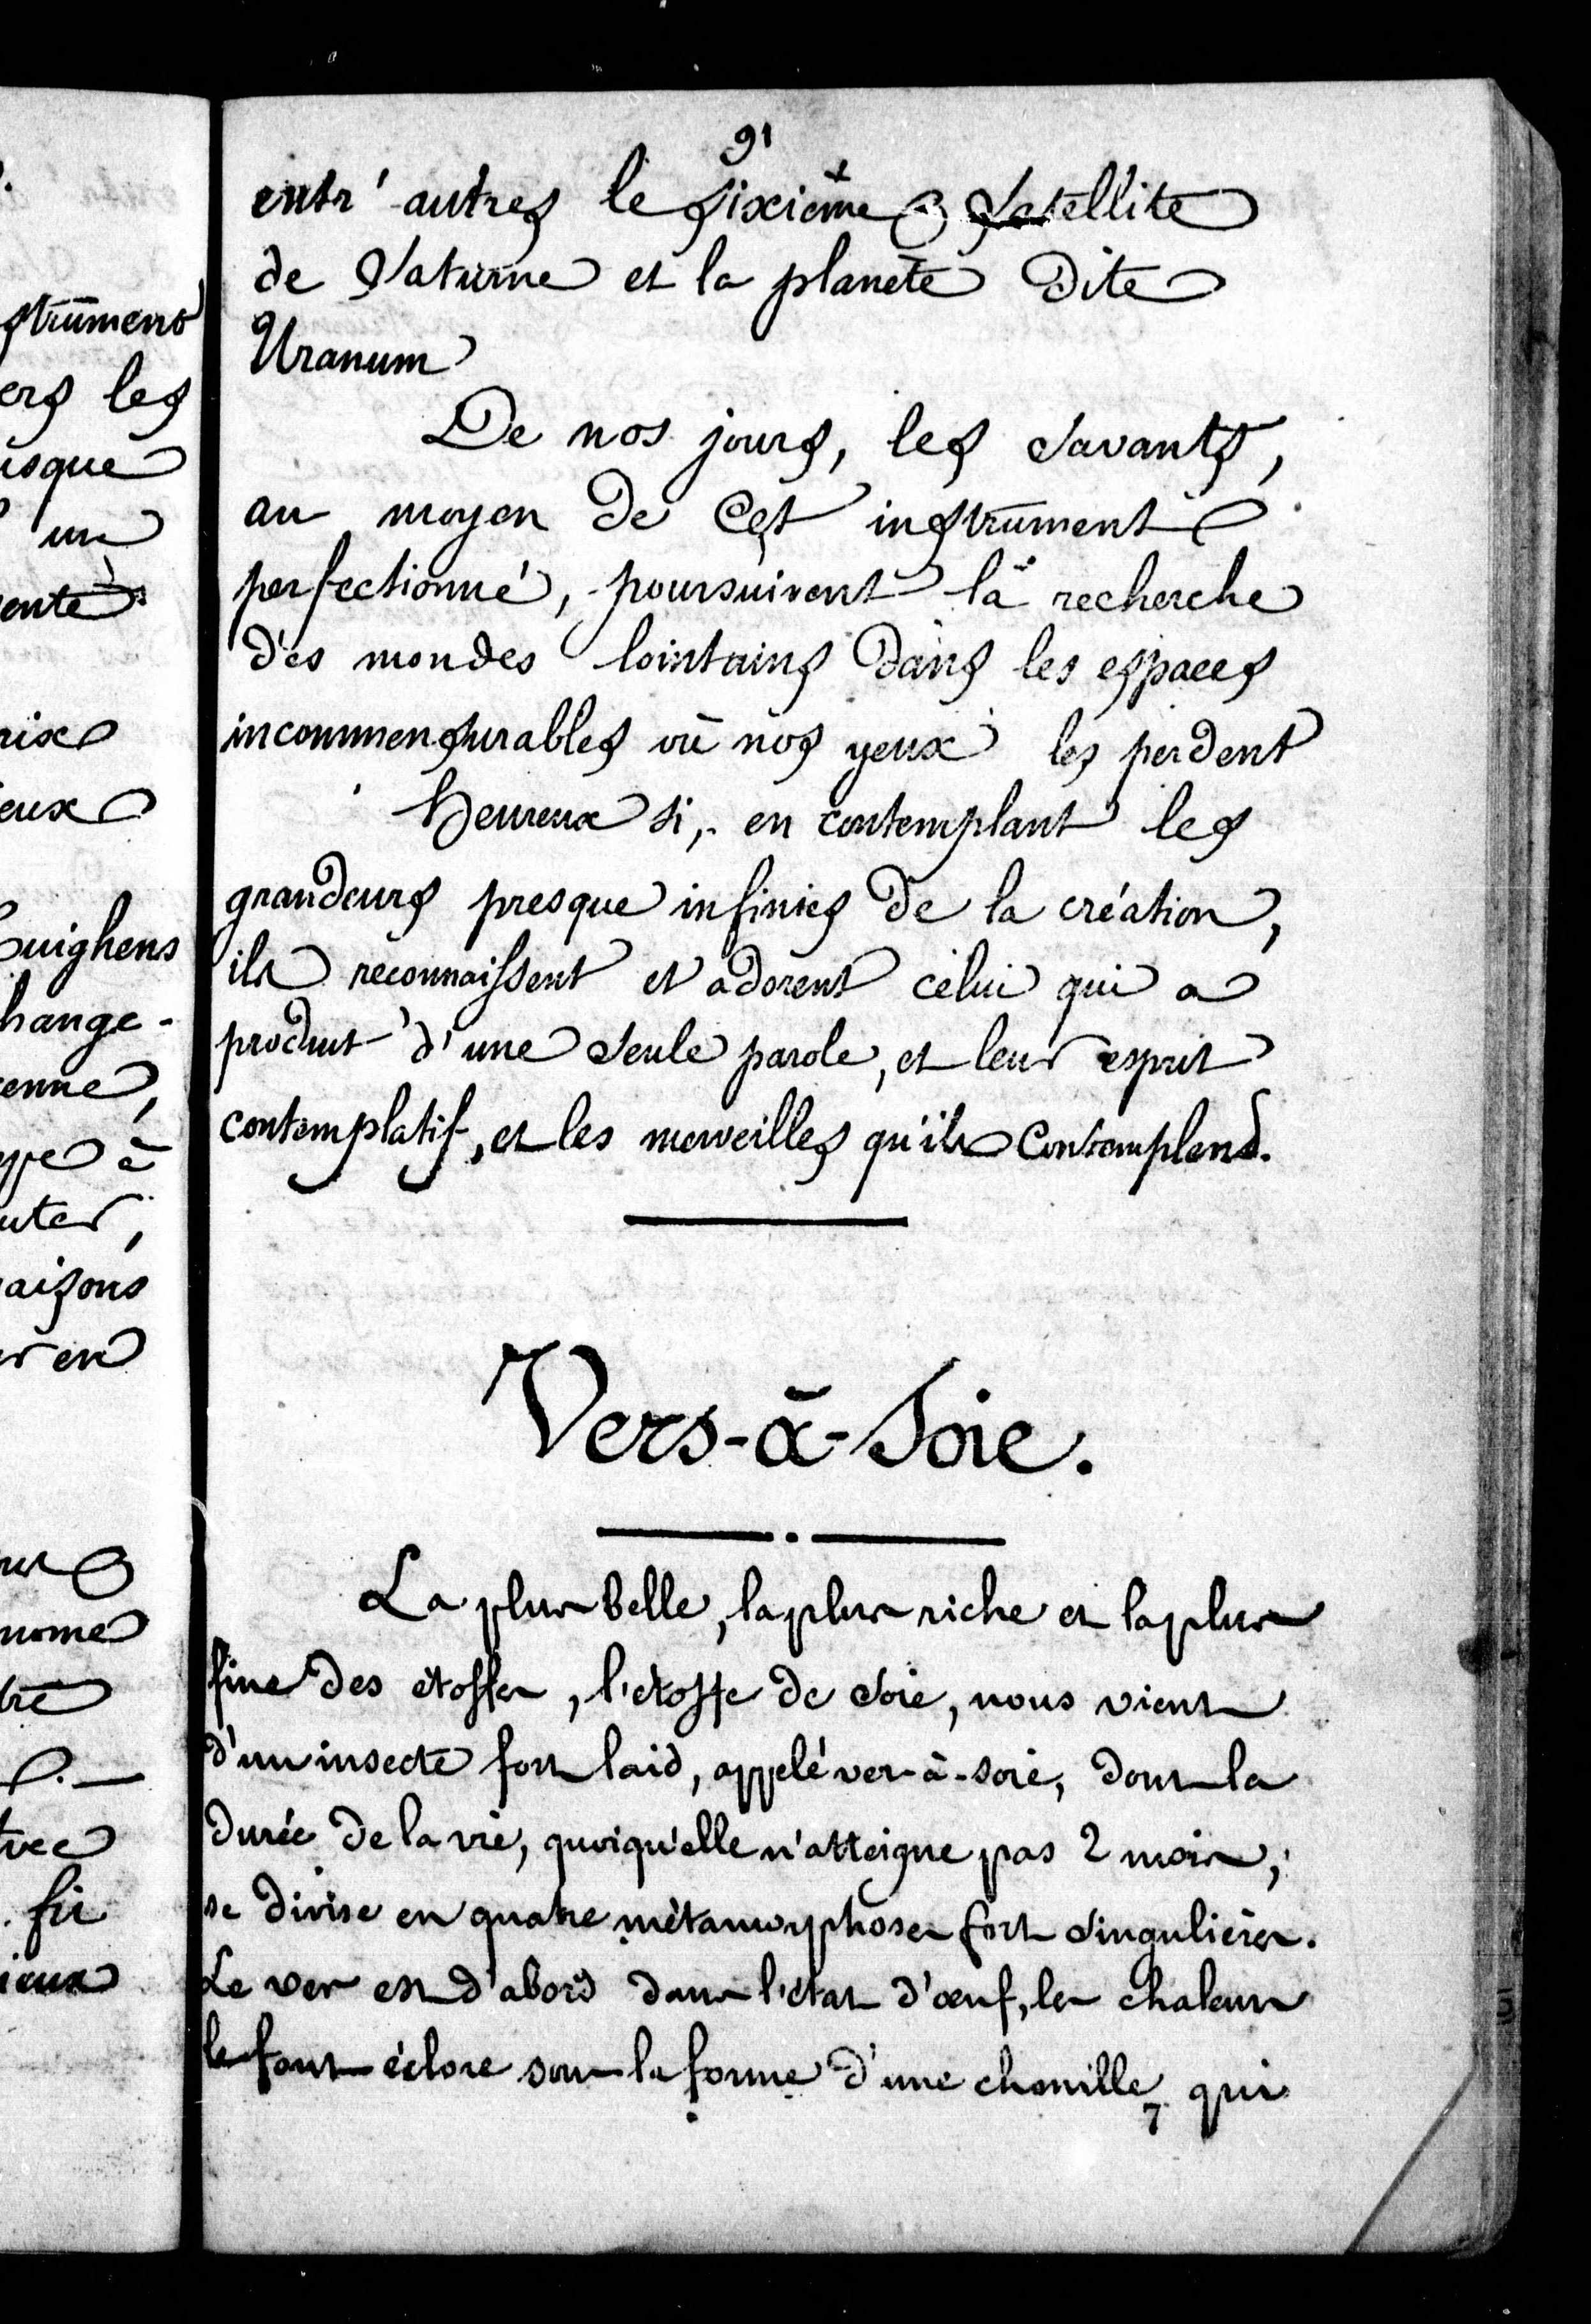 91
entr'autres le sixième Satellite
de Saturne et la planète dite
Uranum
De nos jours, les savants,
au moyen de cet instrument
perfectionné, poursuivent la recherche
des mondes lointains dans les espaces
incommensurables où nos yeux les perdent
Heureux si, en contemplant les
grandeurs presque infinies de la création,
ils reconnaissent et adorent celui qui a
produit d'une seule parole, et leur esprit
contemplatif, et les merveilles qu'ils contemplent.
Vers-à-Soie.
La plus belle, la plus riche et la plus
fine des étoffes, l'étoffe de soie, nous vient
d'un insecte fort laid, appelé ver-à-soie, dont la
durée de la vie, quoiqu'elle n'atteigne pas 2 mois,
se divise en quatre métamorphoses fort singulières.
Le ver est d'abord dans l'état d'œuf, les chaleurs
le font éclore sous la forme d'une chenille qui
7
strument
les
un
Huighens
hange-
aisons